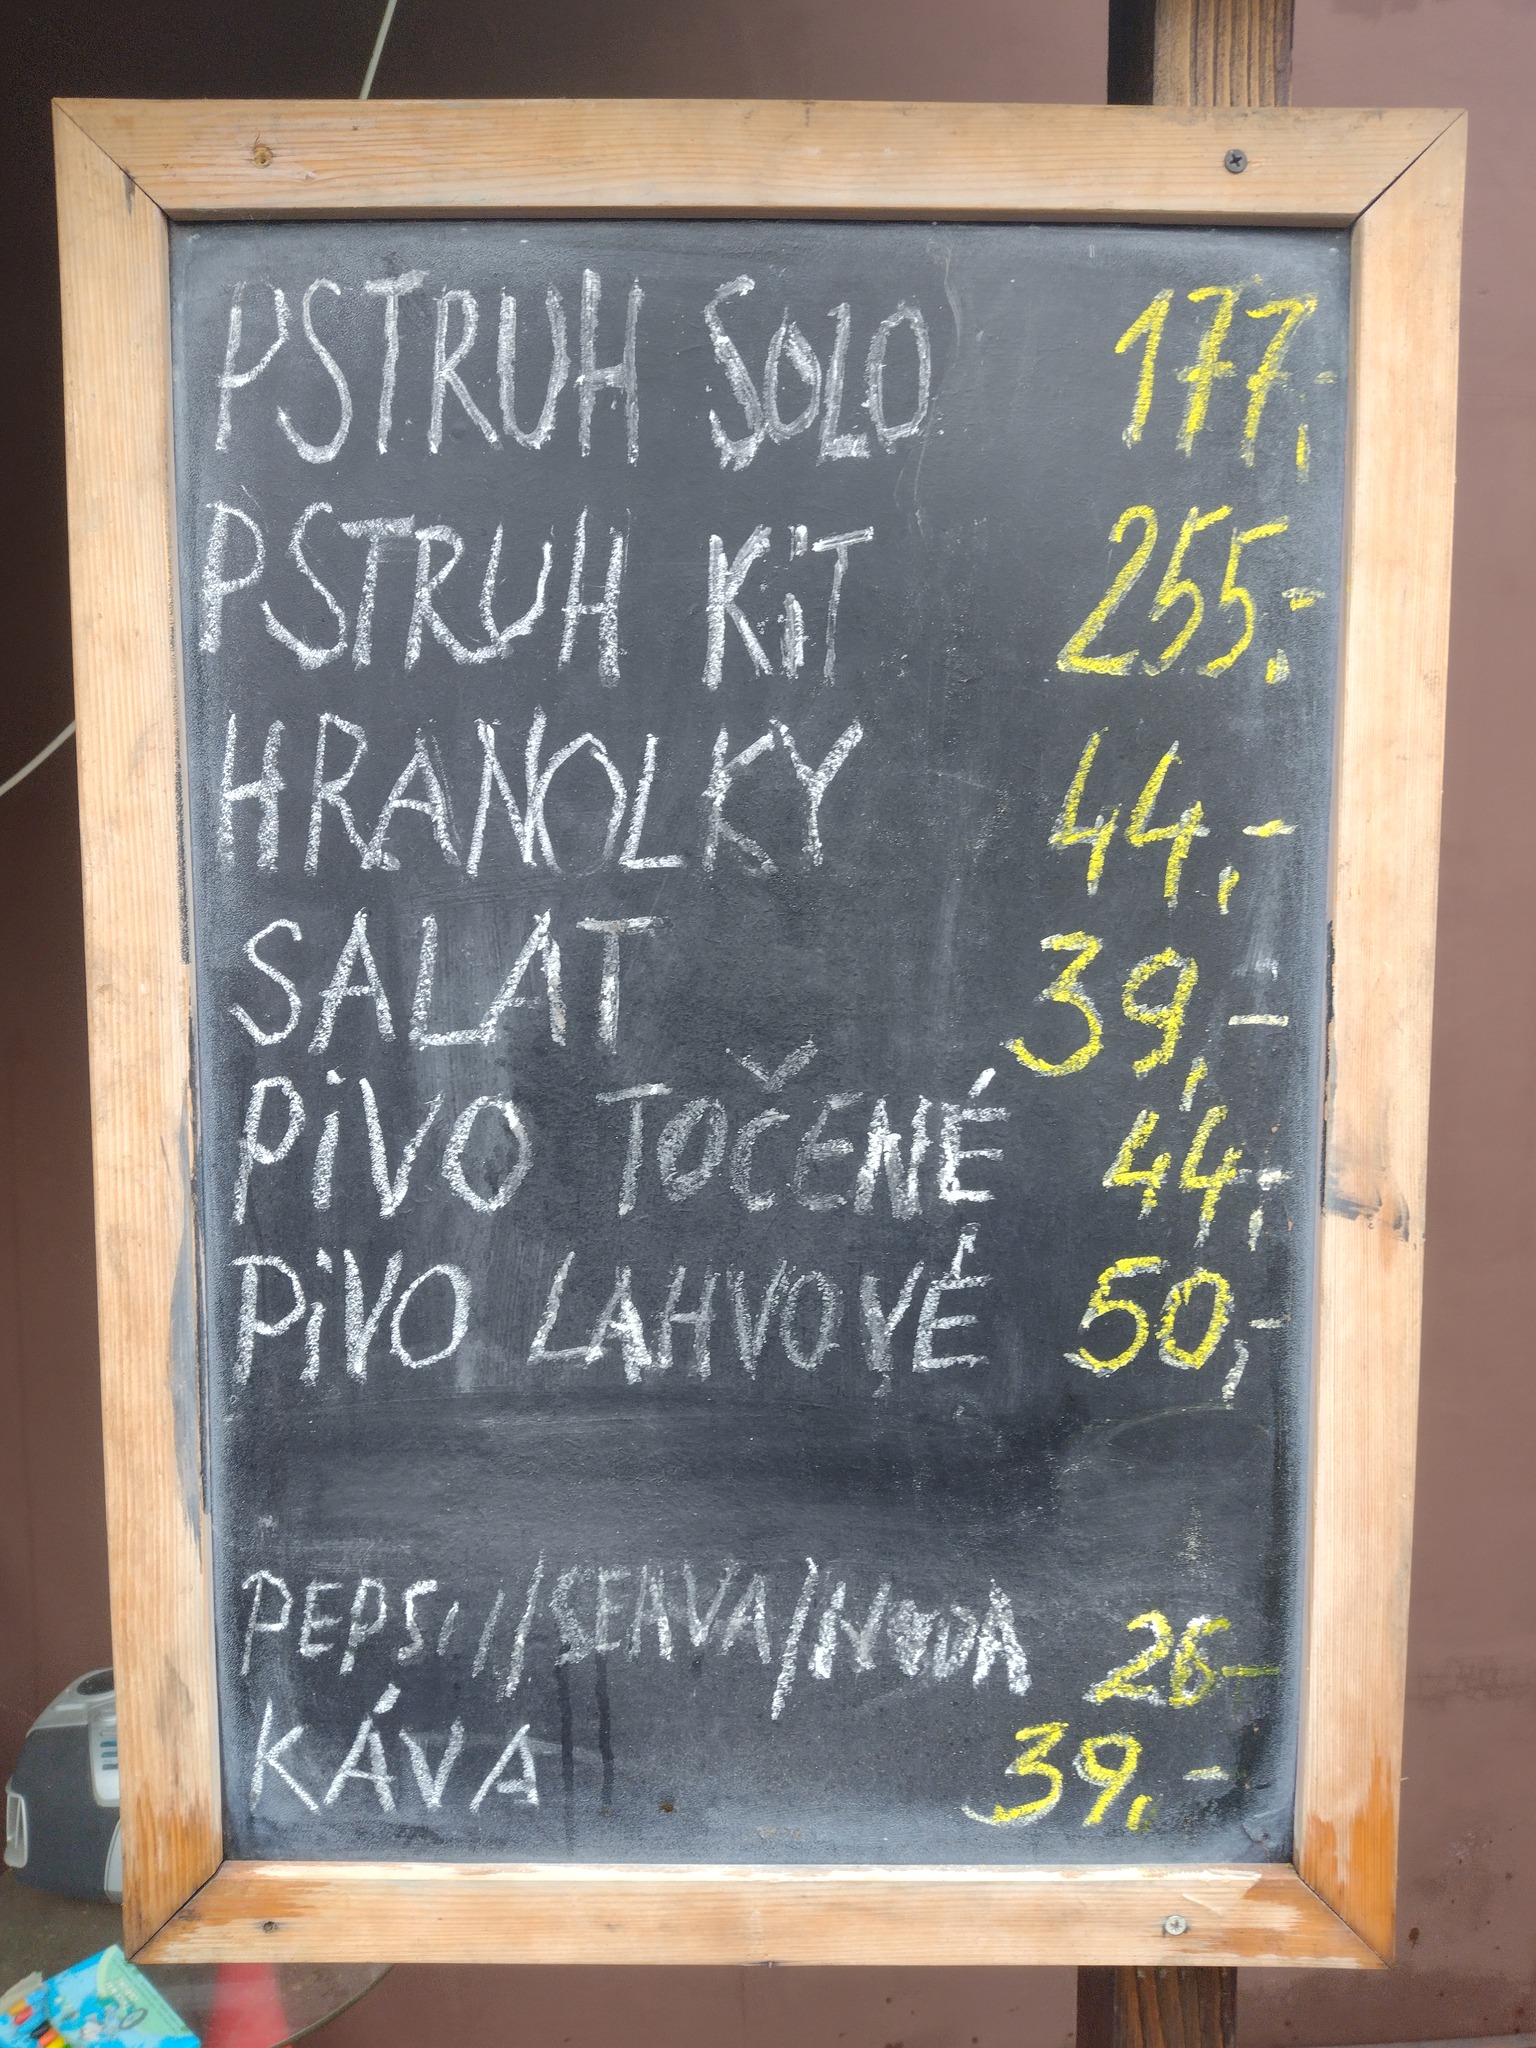 PSTRUH SOLO 177,-
PSTRUH KiT 255,-
HRANOLKY 44,-
SALAT 39,-
PiVO TOČENÉ 44,-
PiVO LAHVOVÉ 50,-
PEPSi // /
KÁVA 39,-